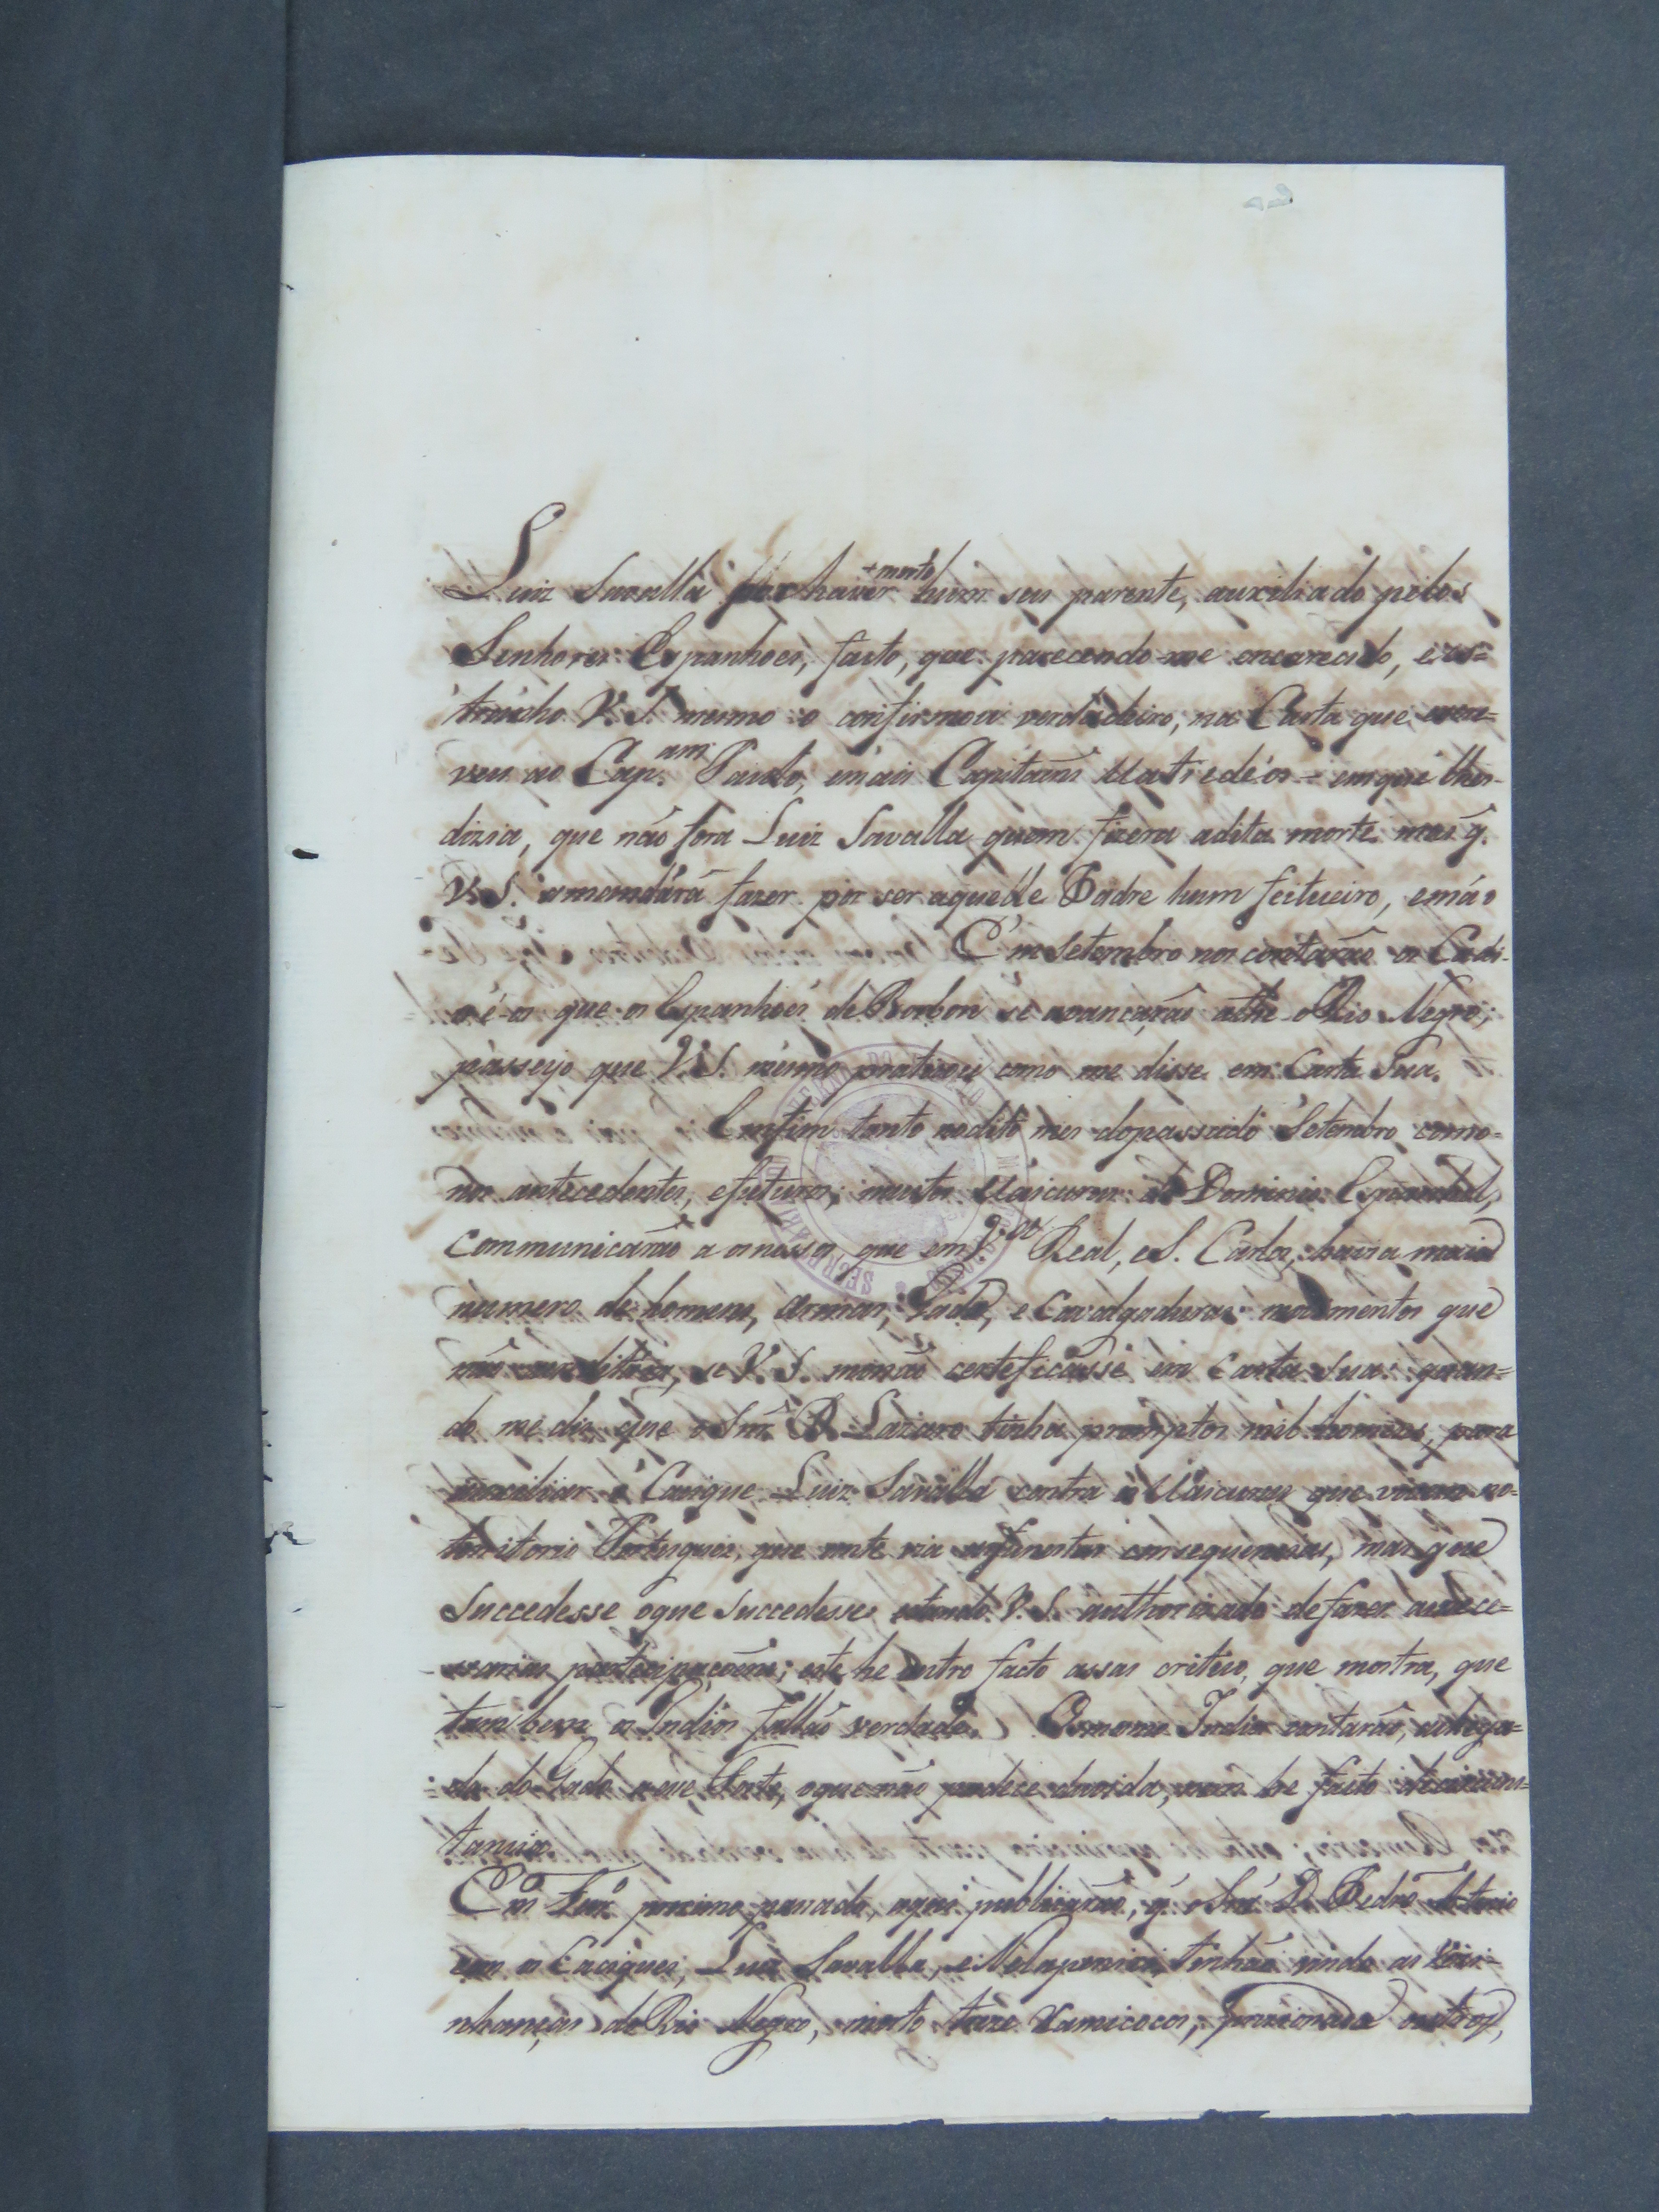 Luiz Savalla por haver +morto hum seu parente, auxiliado pelos
Senhores Espanhoes, facto, que parecendo-me encarecido, e es=
tranho V. S. mesmo o confirmou verdadeiro, na Carta que escre=
veu ao Cap.am Paulo, e mais Capitaens Uatiedéos = em que lhes
dizia, que não fora Luiz Savalla quem fizera a dita morte mas q̃.
V. S. a mandára fazer por ser aquelle Padre hum feiticeiro, e máo
Em Setembro nos contarão os Cadi-
oéos que os Espanhoes de Borbon se avançarão athe o Rio Negro;
passeyo que V. S. mesmo praticou como me disse em Carta Sua.
Emfim tanto no dito mes do passado Setembro como=
nos antecedentes, e futuros, muitos Uaicurus do Dominio Espanhol,
communicarão a os nossos, que em V.a Real, e S. Carlos, havia maior
numero de homens, armas, Gado, e Cavalgaduras movimentos que
não acreditára, se V. S. mo não certeficasse em Carta Sua: quan=
do me diz que o Snr. D. Lazaro tinha promptos mil homens, para
auxiliar o Cacique Luiz Savalla contra os Uaicurus que vivem no=
territorio Portuguez, que ante via as funestas consequencias, mas que
Succedesse o que Succedesse estando V. S. authorizado de fazer as nece=
ssarias participaçoens; este he outro facto assas critico, que mostra, que
tambem os Indios fallão verdade. Os mesmos Indios contarão, a chega=
da do Gado a esse Forte, o que não padece duvida, nem he facto de circuns=
tancia.
Em Janr.o proximo passado, aqui publicarão, q̃. o Snr. D. Pedro Antonio
com os Caciques, Luiz Savalla, e Nelapenica, tinhão vindo as vizi=
nhanças do Rio Negro, morto treze Xamicocos, e outros,